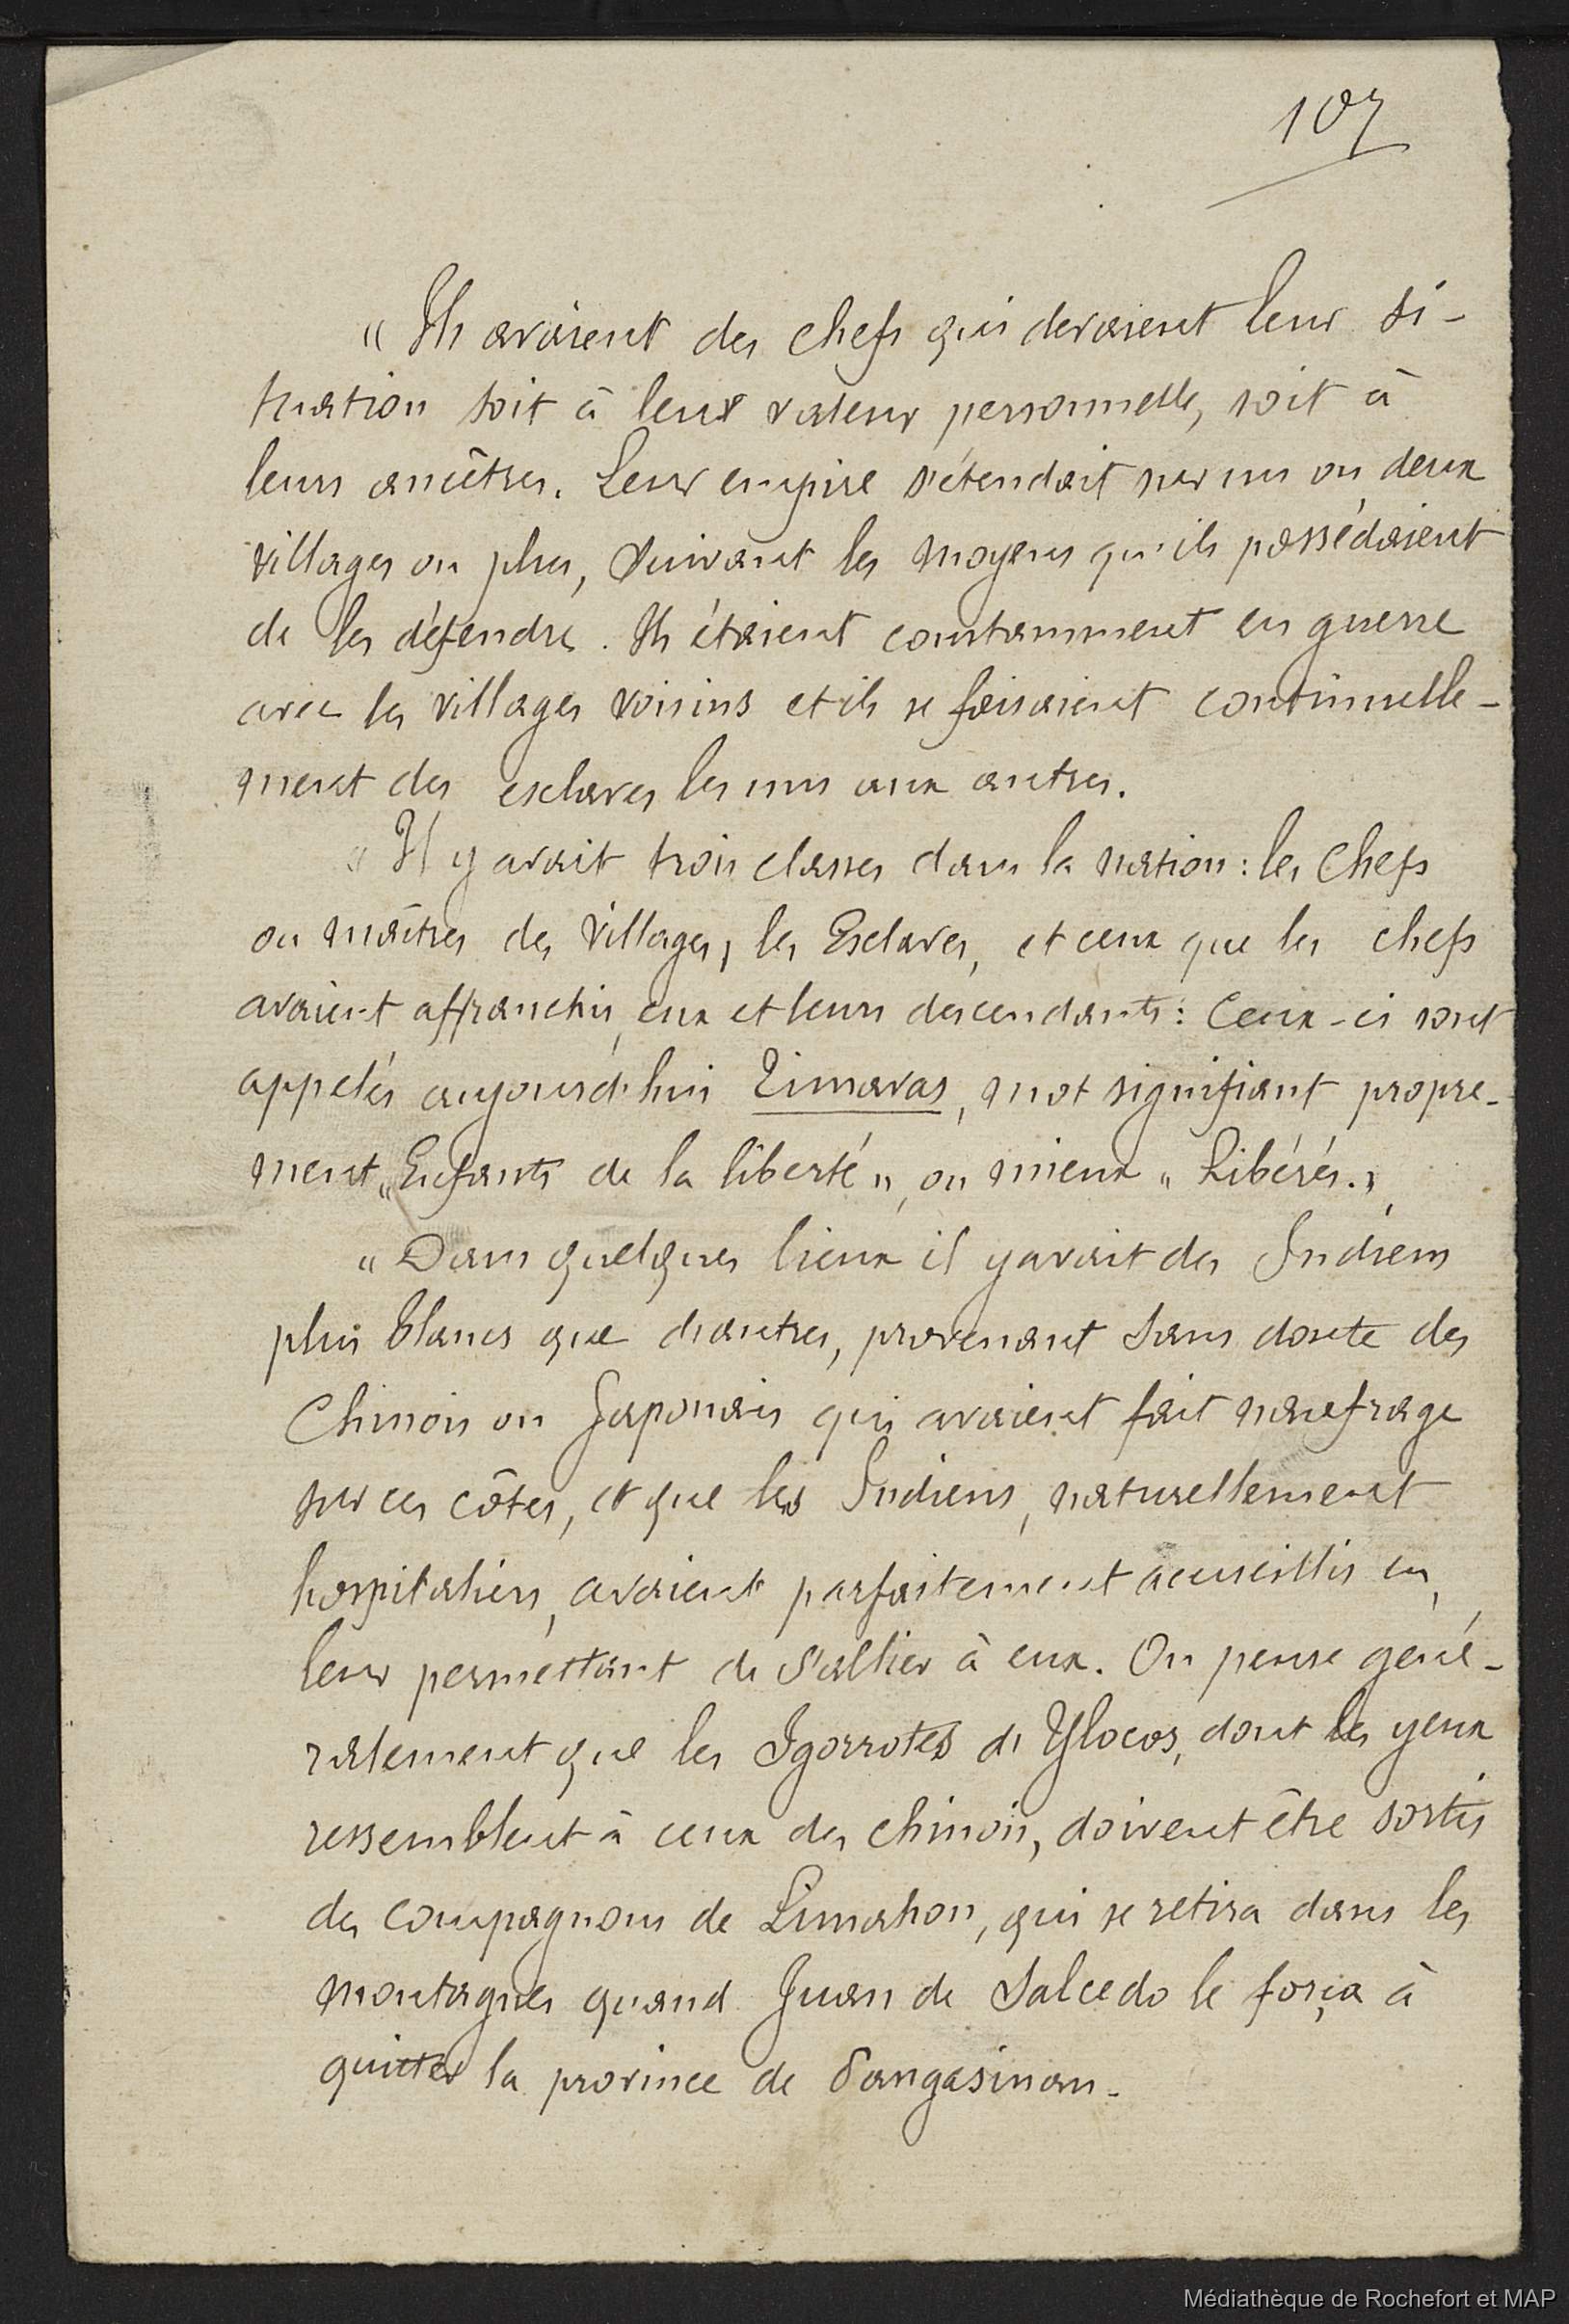 107
" Ils avaient des chefs qui devaient leur si-
tuation soit à leur valeur personnelle, soit à
leurs ancêtres. Leur empire s'étendait sur un ou deux
villages ou plus, suivant les moyens qu'ils possédaient
de les défendre. Ils étaient constamment en guerre
avec les villages voisins et ils se faisaient continuelle-
ment des esclaves les uns aux autres.
" Il y avait trois classes dans la nation : les Chefs
ou maîtres des villages, les Esclaves, et ceux que les chefs
avaient affranchis, eux et leurs descendants : Ceux-ci sont
appelés aujourd'hui Timavas, mot signifiant propre-
ment " Enfants de la liberté ", ou mieux " Libérés. "
" Dans quelques lieux il y avait des Indiens
plus blancs que d'autres, provenant sans doute des
Chinois ou Japonais qui avaient fait naufrage
sur ces côtes, et que les Indiens, naturellement
hospitaliers, avaient parfaitement accueillis en
leur permettant de s'allier à eux. On pense géné-
ralement que les Igorrotes d'Ylocos, dont les yeux
ressemblent à ceux des chinois, doivent être sortis
des compagnons de Limahon, qui se retira dans les
montagnes quand Juan de Salcedo le força à
quitter la province de Pangasinan.
Médiathèque de Rochefort et MAP